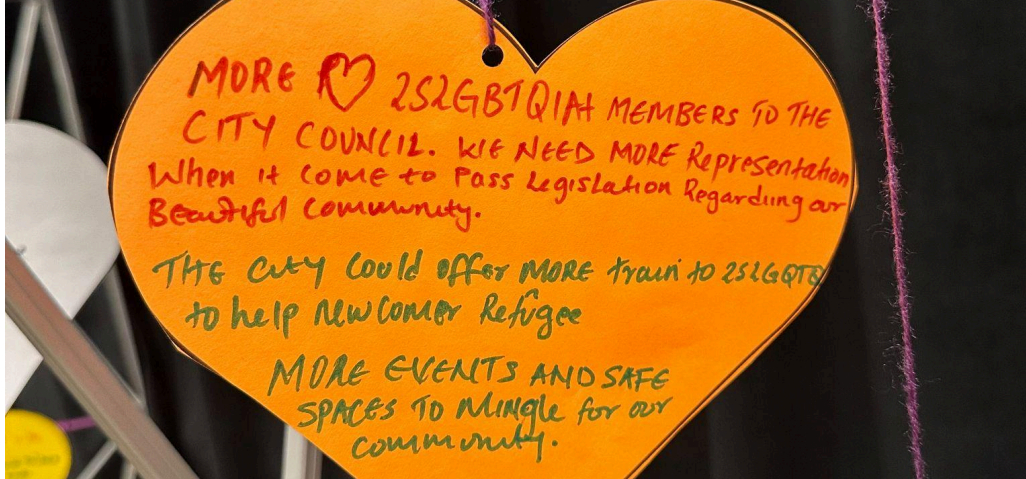 MORE ♡ 2S2GBTQIA+ MEMBERS TO THE
CITY COUNCIL. WE NEED MORE Representation
When it COME to Pass Legislation Regarding our
Beautiful Community.
THE City Could offer MORE train to 2S2GQTQ
to help New Comer Refugee
MORE EVENTS AND SAFE
SPACES TO MiNGle for our
community.